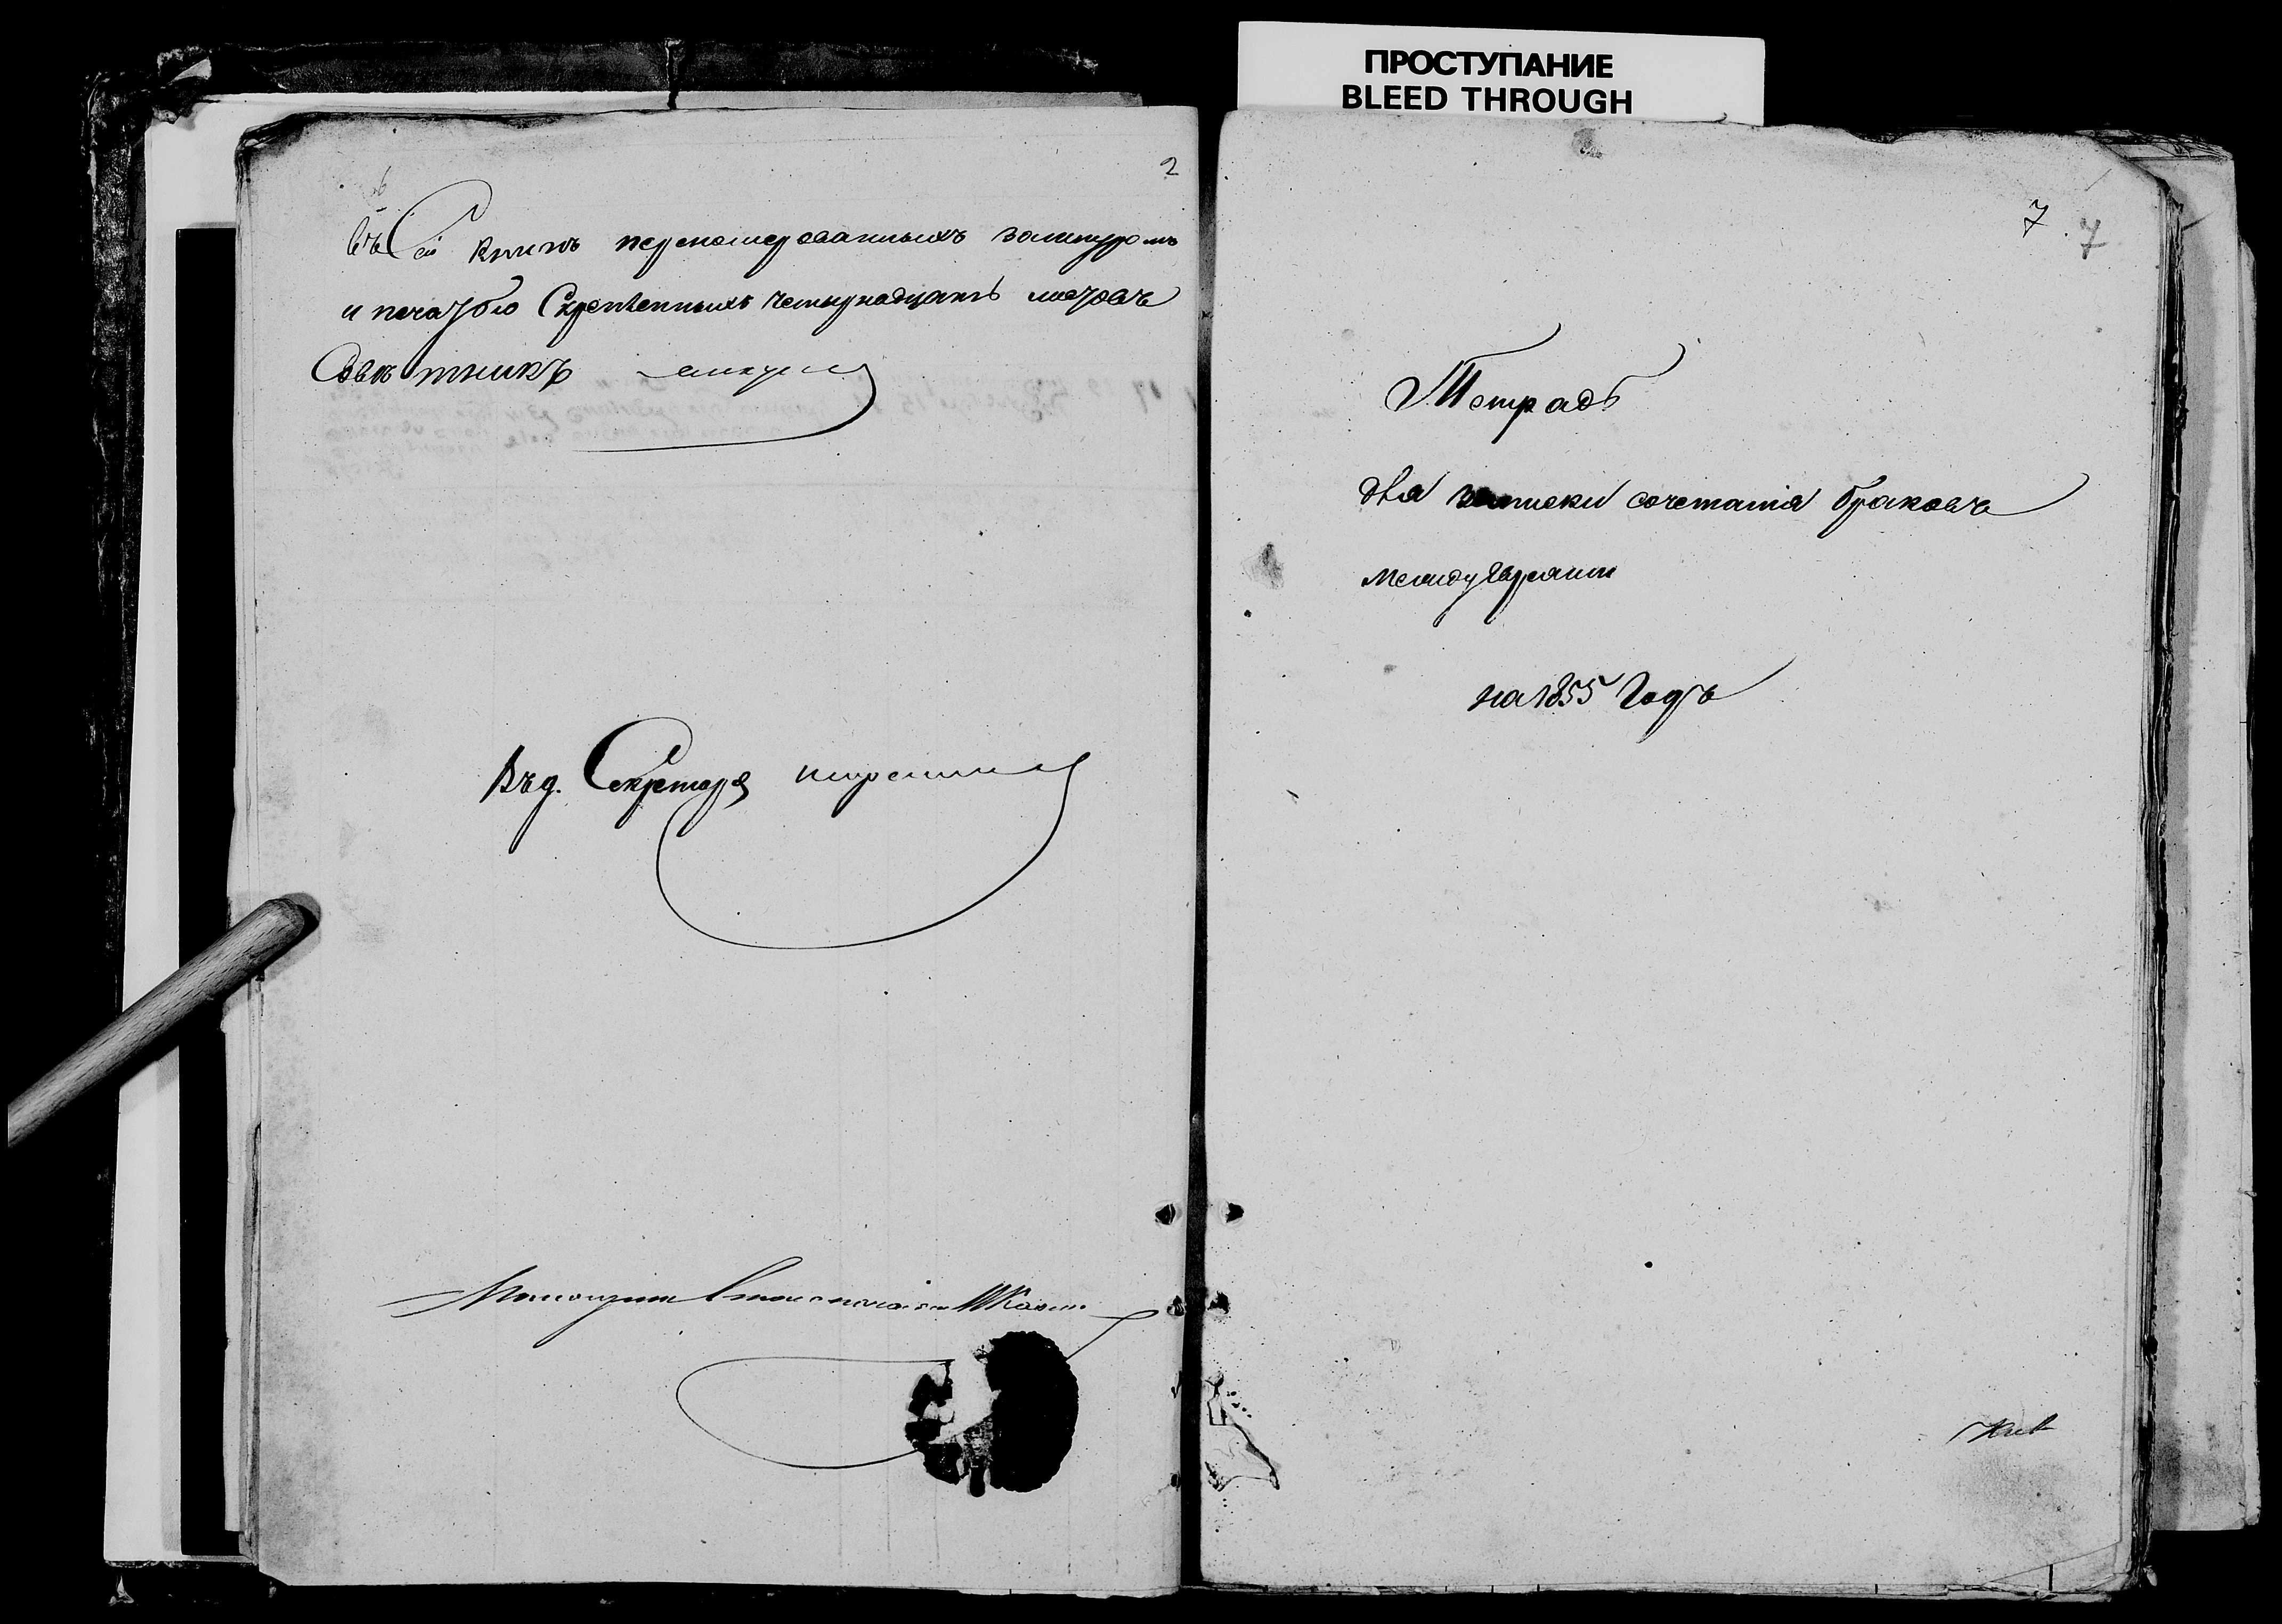 ПРОСТУПАНИЕ
BLEED THROUGH
2
въ Сей книгѣ переномерованныхъ зашнуром
и печатью Скрепленныхъ четырнадцать листовъ
Совѣтникъ
Въ д. Секретаря
7 7
Тетрадь
для записки сочетанія браковъ
между Евреями
на 1855 Годъ